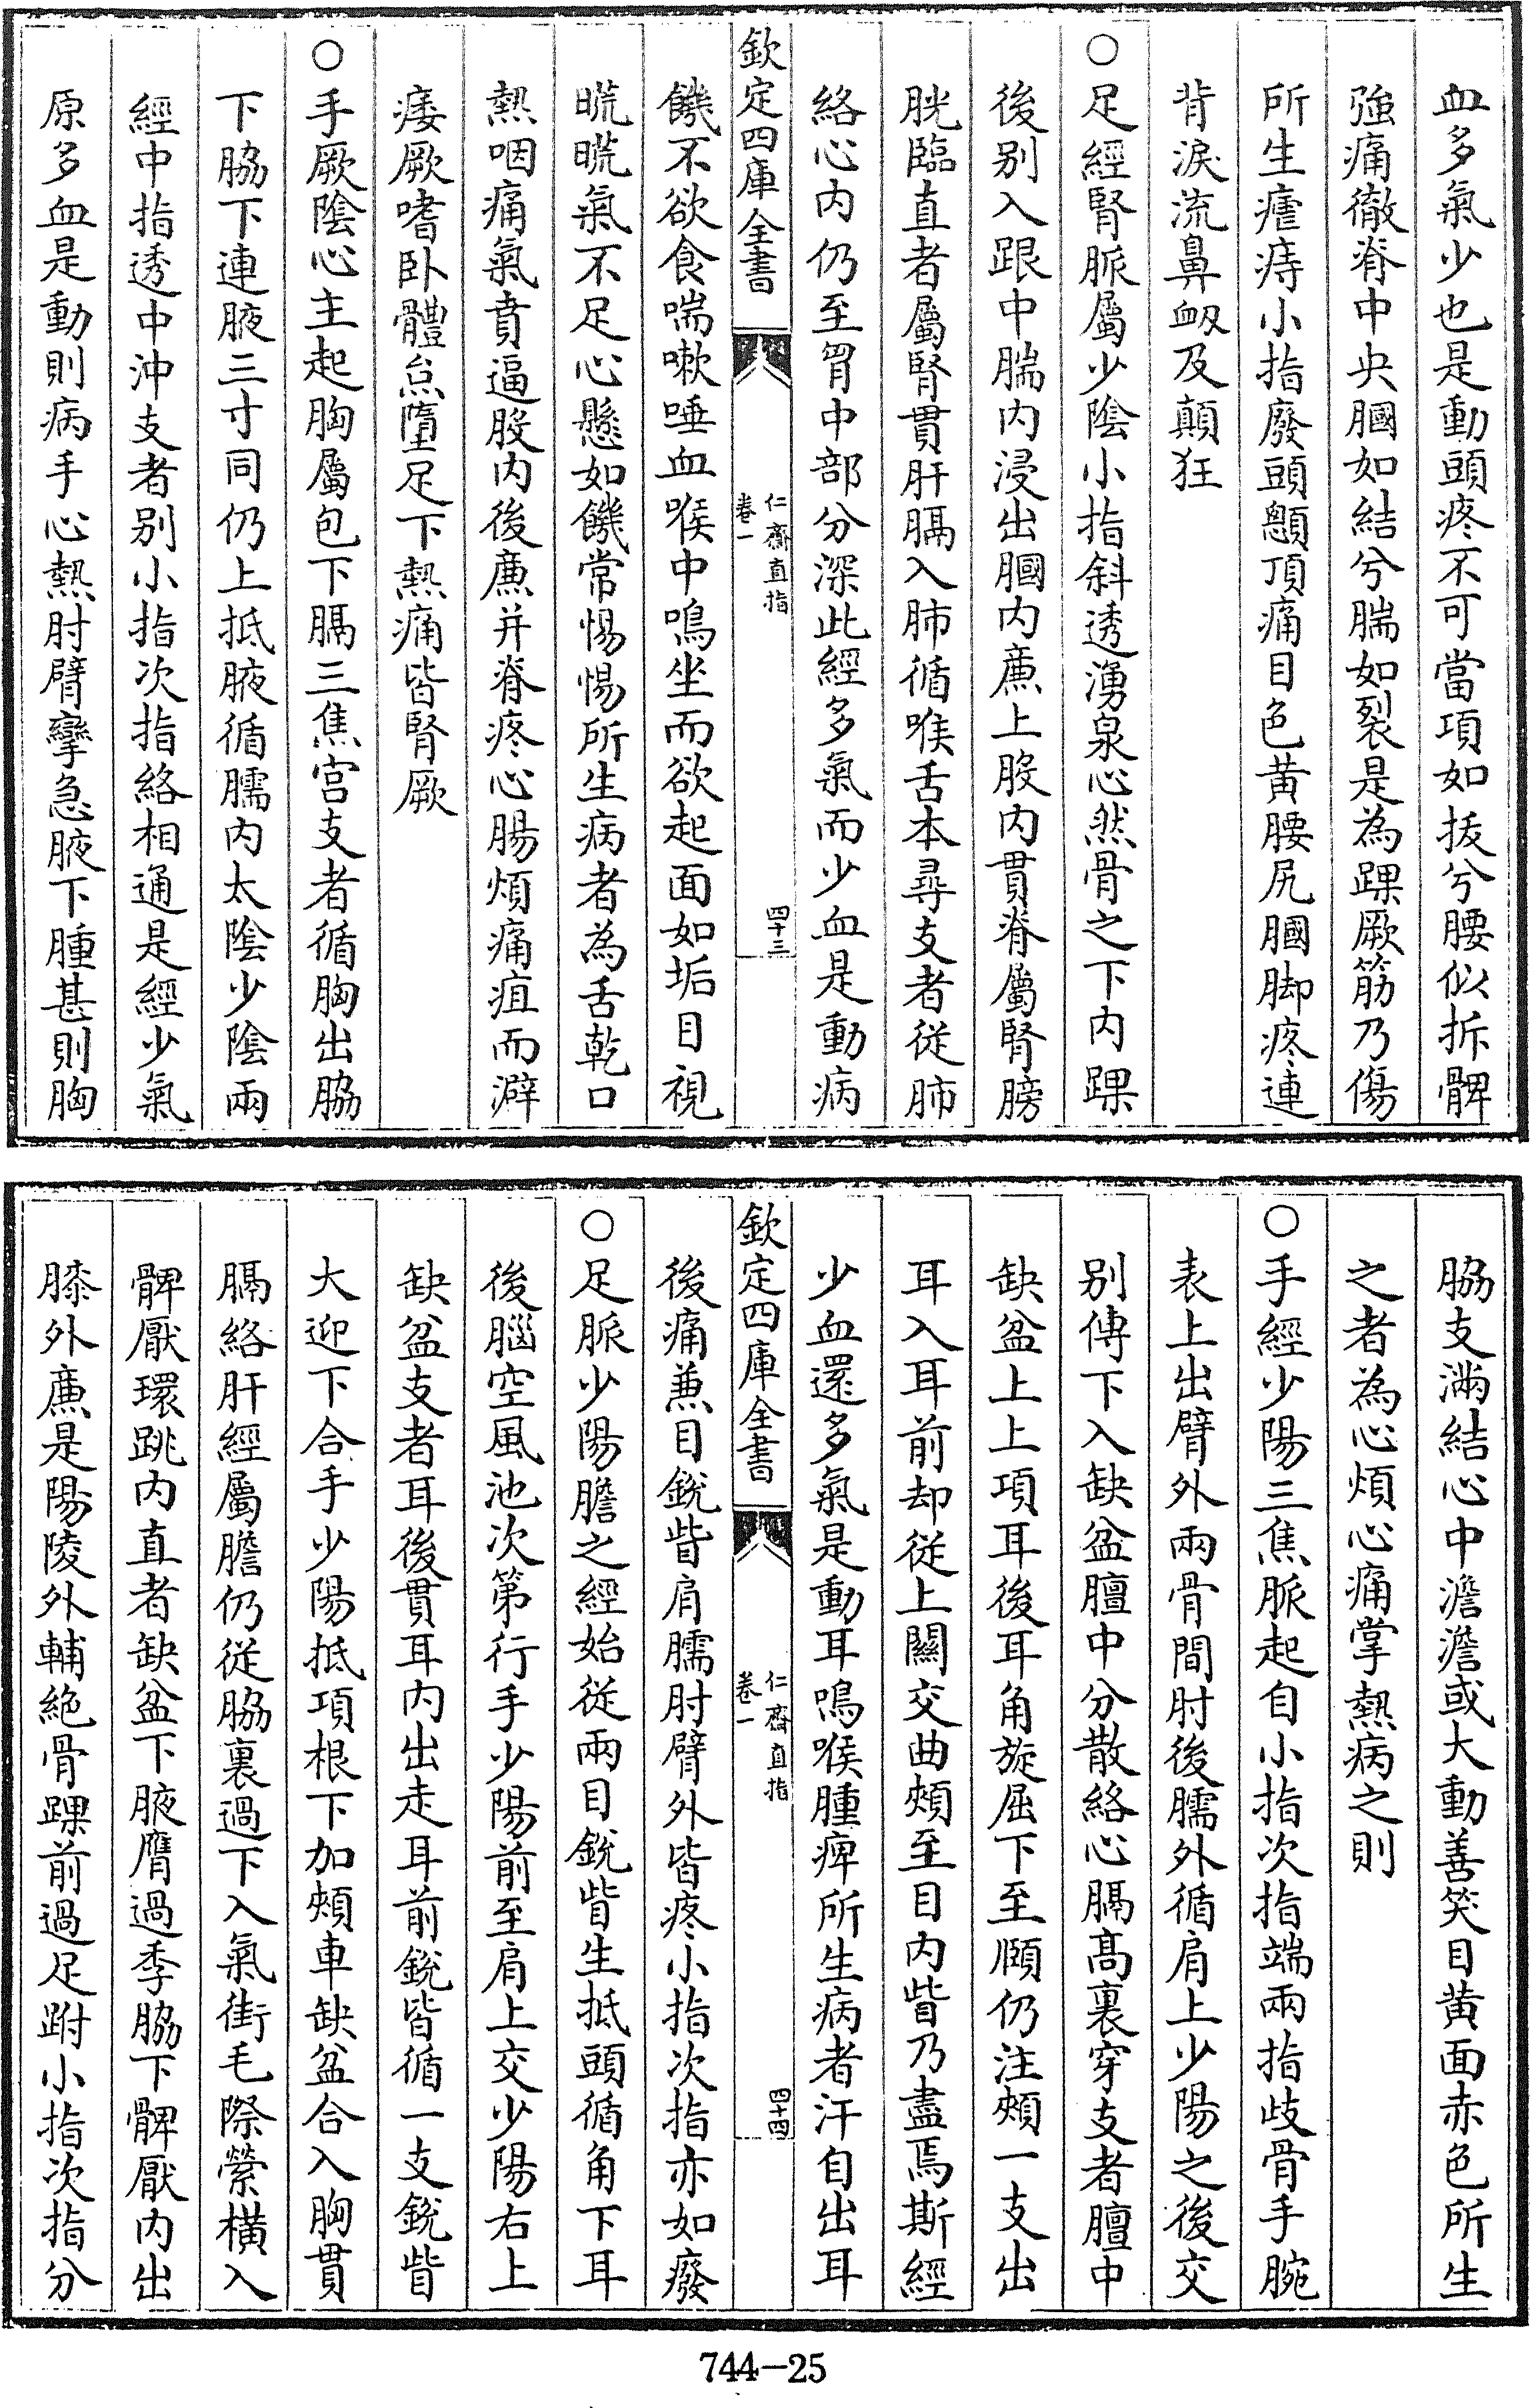 血多氣少也是動頭疼不可當項如拔兮腰似折髀
強痛徹脊中央膕如結兮腨如裂是為踝厥筋乃傷
所生瘧痔小指廢頭顖頂痛目色黃腰尻膕脚疼連
背淚流鼻衂及顛狂
○足經腎脈屬少陰小指斜透湧泉心然骨之下內踝
後別入跟中腨內浸出膕內廉上股內貫脊屬腎膀
胱臨直者屬腎貫肝膈入肺循喉舌本尋支者從肺
絡心內仍至胷中部分深此經多氣而少血是動病
欽定四庫全書
仁齋直指
卷一
四十三
饑不欲食喘嗽唾血喉中鳴坐而欲起面如垢目視
䀮䀮氣不足心懸如饑常惕惕所生病者為舌乾口
熱咽痛氣賁逼股內後廉并脊疼心腸煩痛疽而澼
痿厥嗜卧體怠墮足下熱痛皆腎厥
○手厥陰心主起胸屬包下膈三焦宮支者循胸出脇
下脇下連腋三寸同仍上抵腋循臑內太陰少陰兩
經中指透中沖支者別小指次指絡相通是經少氣
原多血是動則病手心熱肘臂攣急腋下腫甚則胸
脇支滿結心中澹澹或大動善笑目黃面赤色所生
之者為心煩心痛掌熱病之則
○手經少陽三焦脈起自小指次指端兩指歧骨手腕
表上出臂外兩骨間肘後臑外循肩上少陽之後交
別傳下入缺盆膻中分散絡心膈高裏穿支者膻中
缺盆上上項耳後耳角旋屈下至頤仍注頰一支出
耳入耳前却從上關交曲頰至目內眥乃盡焉斯經
少血還多氣是動耳鳴喉腫痺所生病者汗自出耳
欽定四庫全書
仁齋直指
卷一
四十四
後痛兼目銳眥肩臑肘臂外皆疼小指次指亦如癈
○足脈少陽膽之經始從兩目銳眥生抵頭循角下耳
後腦空風池次第行手少陽前至肩上交少陽右上
缺盆支者耳後貫耳內出走耳前銳眥循一支銳眥
大迎下合手少陽抵項根下加頰車缺盆合入胸貫
膈絡肝經屬膽仍從脇裏過下入氣街毛際縈橫入
髀厭環跳內直者缺盆下腋膺過季脇下髀厭內出
膝外廉是陽陵外輔絕骨踝前過足跗小指次指分
744-25